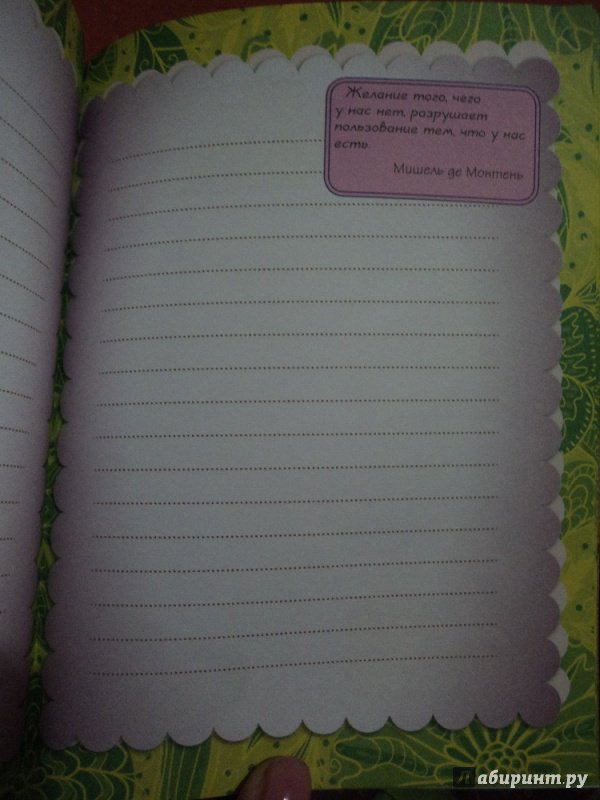 Желание того, чего
у нас нет, разрушает
пользование тем, что у нас
есть.
Мишель де Монтень
лабиринт.ру